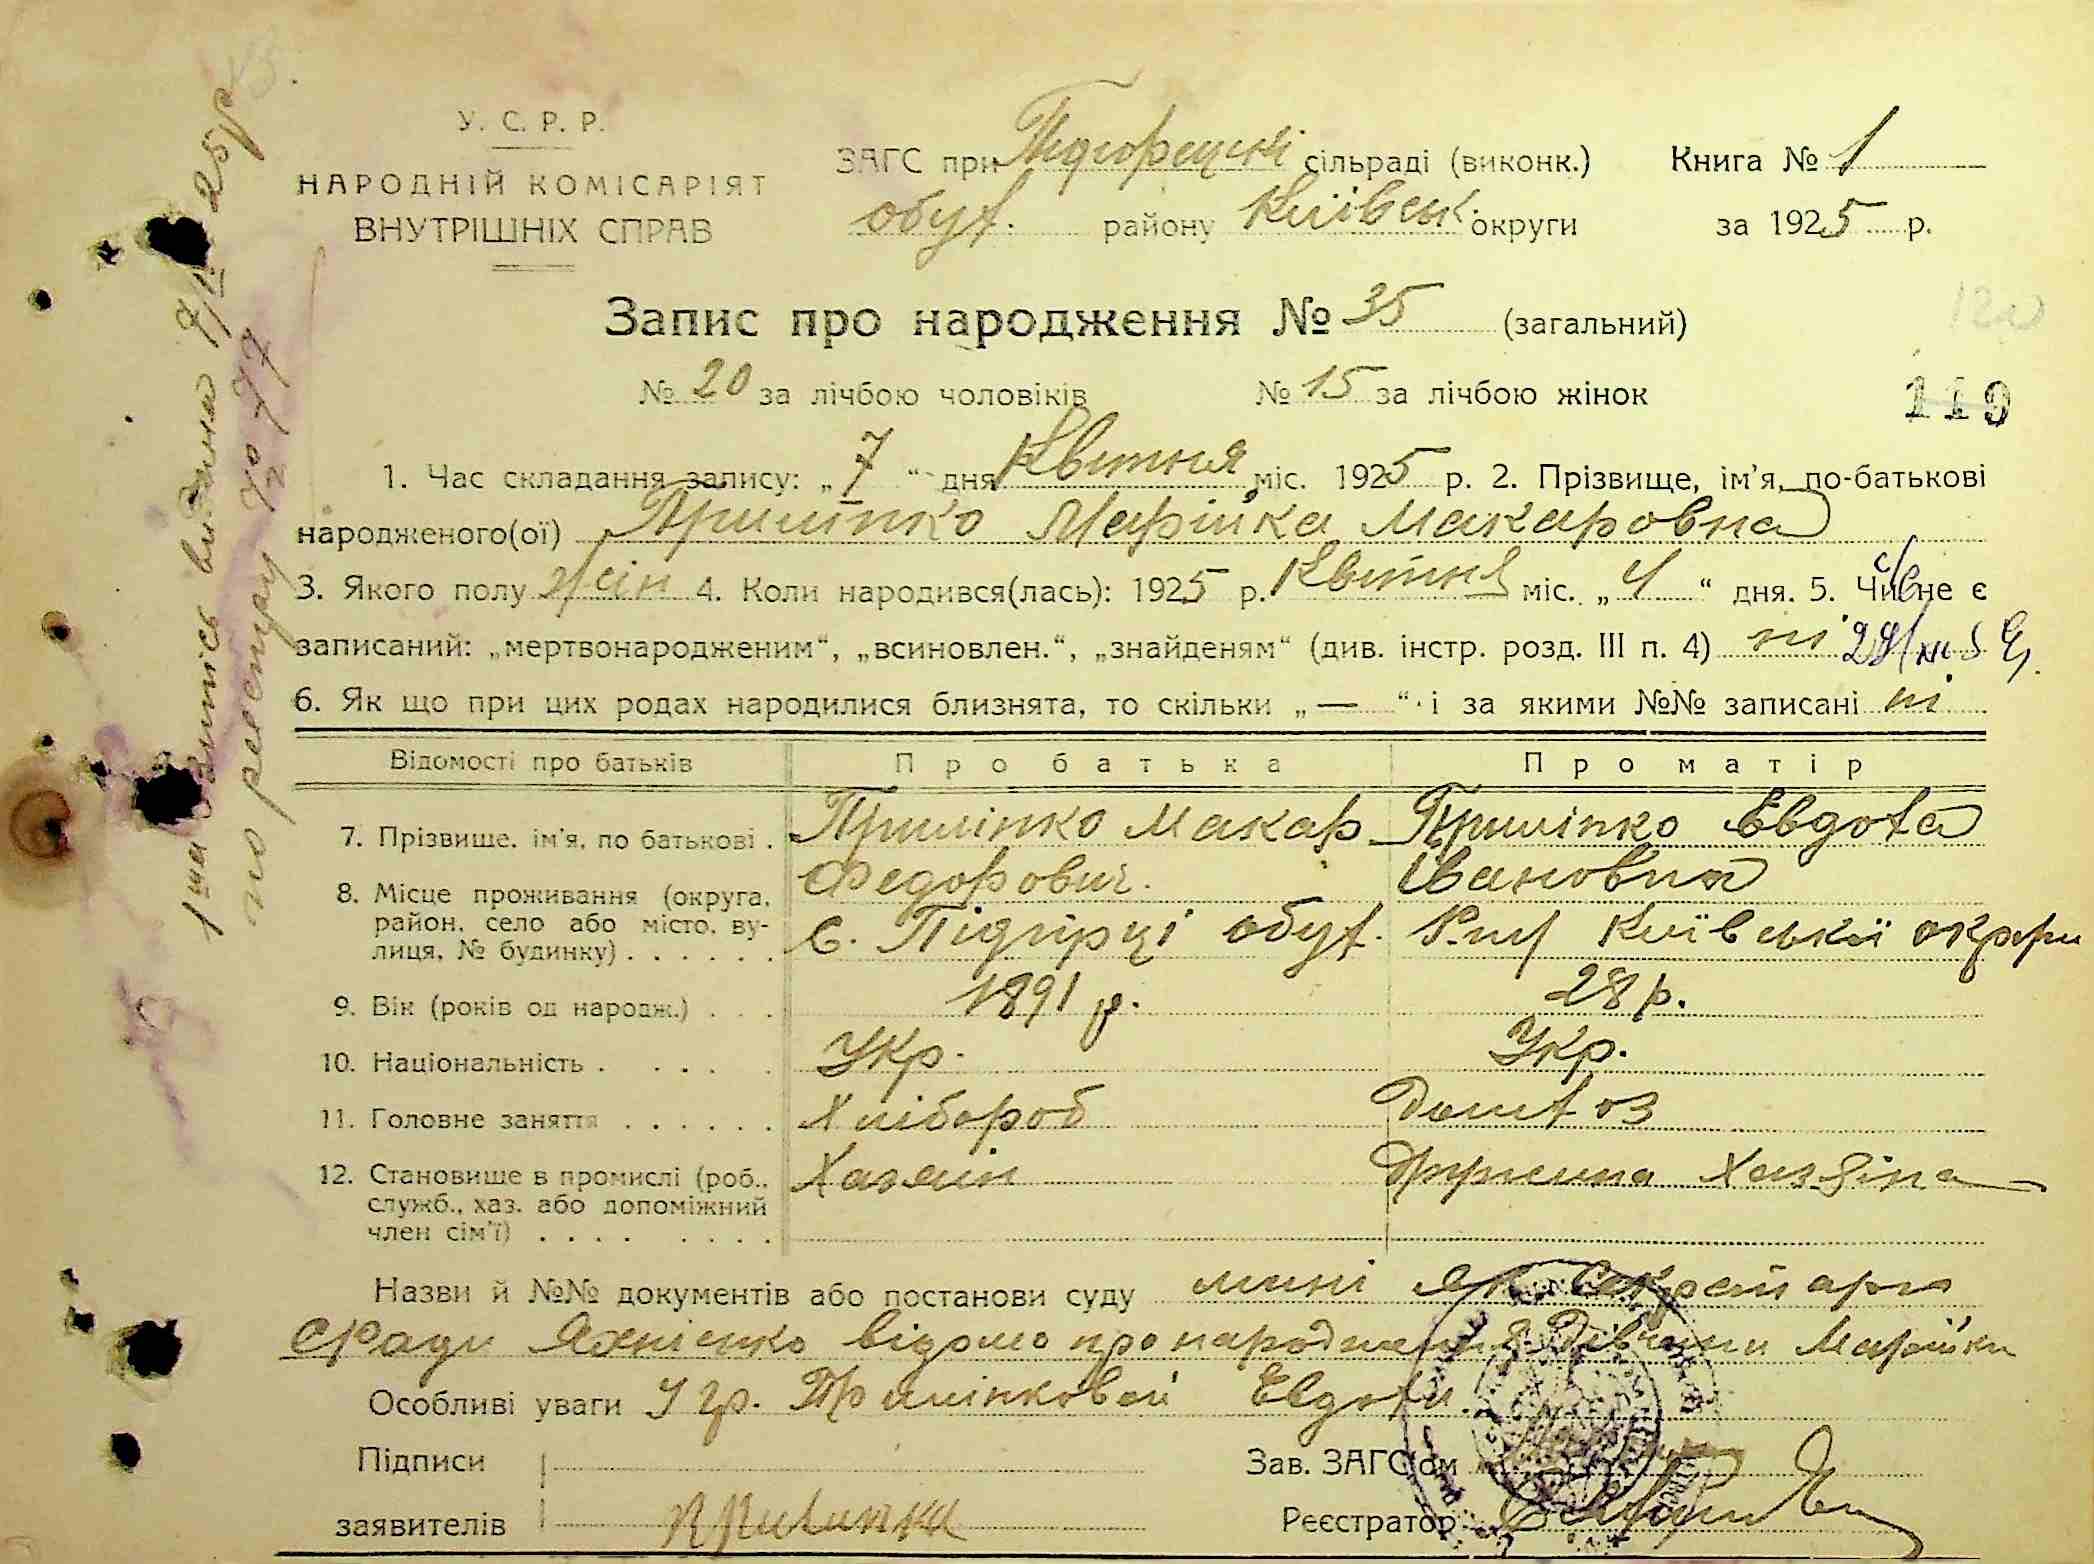 У. С. Р. Р.
НАРОДНІЙ КОМІСАРІЯТ
ВНУТРІШНІХ СПРАВ
ЗАГС при Підгорецькі сільраді (виконк.) Книга № 1
обух. району Київськ. округи за 1925 р.
Запис про народження № 35 (загальний)
№ 20 за лічбою чоловіків № 15 за лічбою жінок
119
1. Час складання запису: „7“ дня Квитня міс. 1925 р. 2. Прізвище, ім'я, по-батькові
народженого(ої) Приліпко Марійка Макаровна
3. Якого полу жін 4. Коли народився(лась): 1925 р. Квитня міс. „4“ дня. 5. Чи не є
записаний: „мертвонародженим“, „всиновлен.“, „знайденям“ (див. інстр. розд. III п. 4) ні
6. Як що при цих родах народилися близнята, то скільки „—“ і за якими №№ записані ні
Відомості про батьків Про батька Про матір
7. Прізвище, ім'я, по батькові . Приліпко Макар Федорович. Приліпко Евдоха Івановна
8. Місце проживання (округа, район, село або місто, вулиця, № будинку) . . . . . . с. Підгірці обух. Київської округи
9. Вік (років од народж.) . . . 1891 р. 28 р.
10. Національність . . . . . Укр. Укр.
11. Головне заняття . . . . . . Хлібороб Домхоз
12. Становище в промислі (роб., служб., хаз. або допоміжний член сім'ї) . . . . . . . . Хазяін Дружина Хазяіна
Назви й №№ документів або постанови суду мині як Секретарю
с/ради відомо про народження дівчини Марійки
Особливі уваги У гр. Приліпковой Евдохи.
Підписи Зав. ЗАГС'ом
заявителів Реєстратор
1ша запись видана
по реєстру